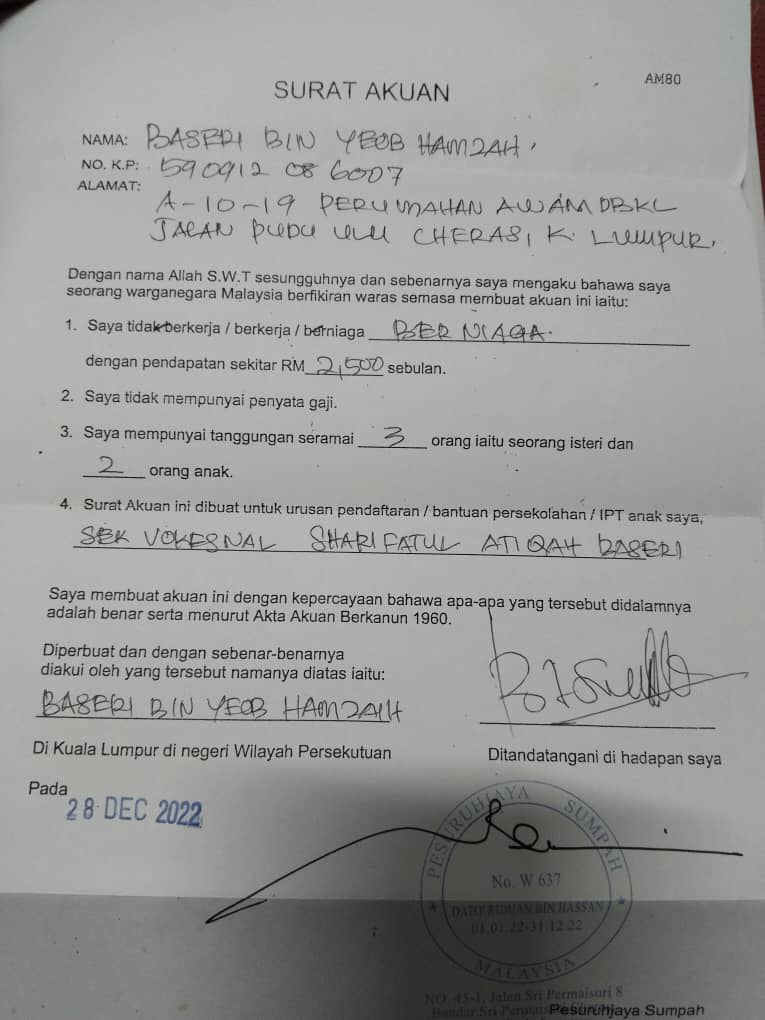 AM80
SURAT AKUAN
NAMA: BASERI BIN YEOB HAMZAH.
NO. K.P: 590912 08 6007
ALAMAT:
A-10-19 PERUMAHAN AWAM DBKL
JALAN PUDU ULU CHERAS, K. LUMPUR.
Dengan nama Allah S.W.T sesungguhnya dan sebenarnya saya mengaku bahawa saya
seorang warganegara Malaysia berfikiran waras semasa membuat akuan ini iaitu:
1. Saya tidak berkerja / berkerja / berniaga BER NIAGA.
dengan pendapatan sekitar RM 2,500 sebulan.
2. Saya tidak mempunyai penyata gaji.
3. Saya mempunyai tanggungan seramai 3 orang iaitu seorang isteri dan
2 orang anak.
4. Surat Akuan ini dibuat untuk urusan pendaftaran / bantuan persekolahan / IPT anak saya,
SEK VOKESNAL SHARIFATUL ATIQAH BASERI
Saya membuat akuan ini dengan kepercayaan bahawa apa-apa yang tersebut didalamnya
adalah benar serta menurut Akta Akuan Berkanun 1960.
Diperbuat dan dengan sebenar-benarnya
diakui oleh yang tersebut namanya diatas iaitu:
BASERI BIN YEOB HAMZAH
Di Kuala Lumpur di negeri Wilayah Persekutuan
Ditandatangani di hadapan saya
Pada
28 DEC 2022
PESURUHJAYA SUMPAH
No. W 637
DATO' RIDUAN BIN HASSAN
01.01.22-31.12.22
MALAYSIA
NO. 45-1, Jalan Sri Permaisuri 8
Bandar Sri
Pesuruhjaya Sumpah